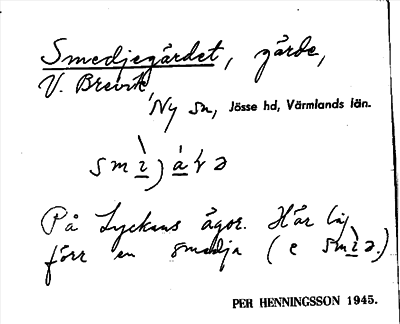 Smedjegärdet, gärde,
V. Brevik
Ny sn, Jösse hd, Värmlands län.
På Lyckans ägor. Här låg
förr en smedja (e
PER HENNINGSSON 1945.